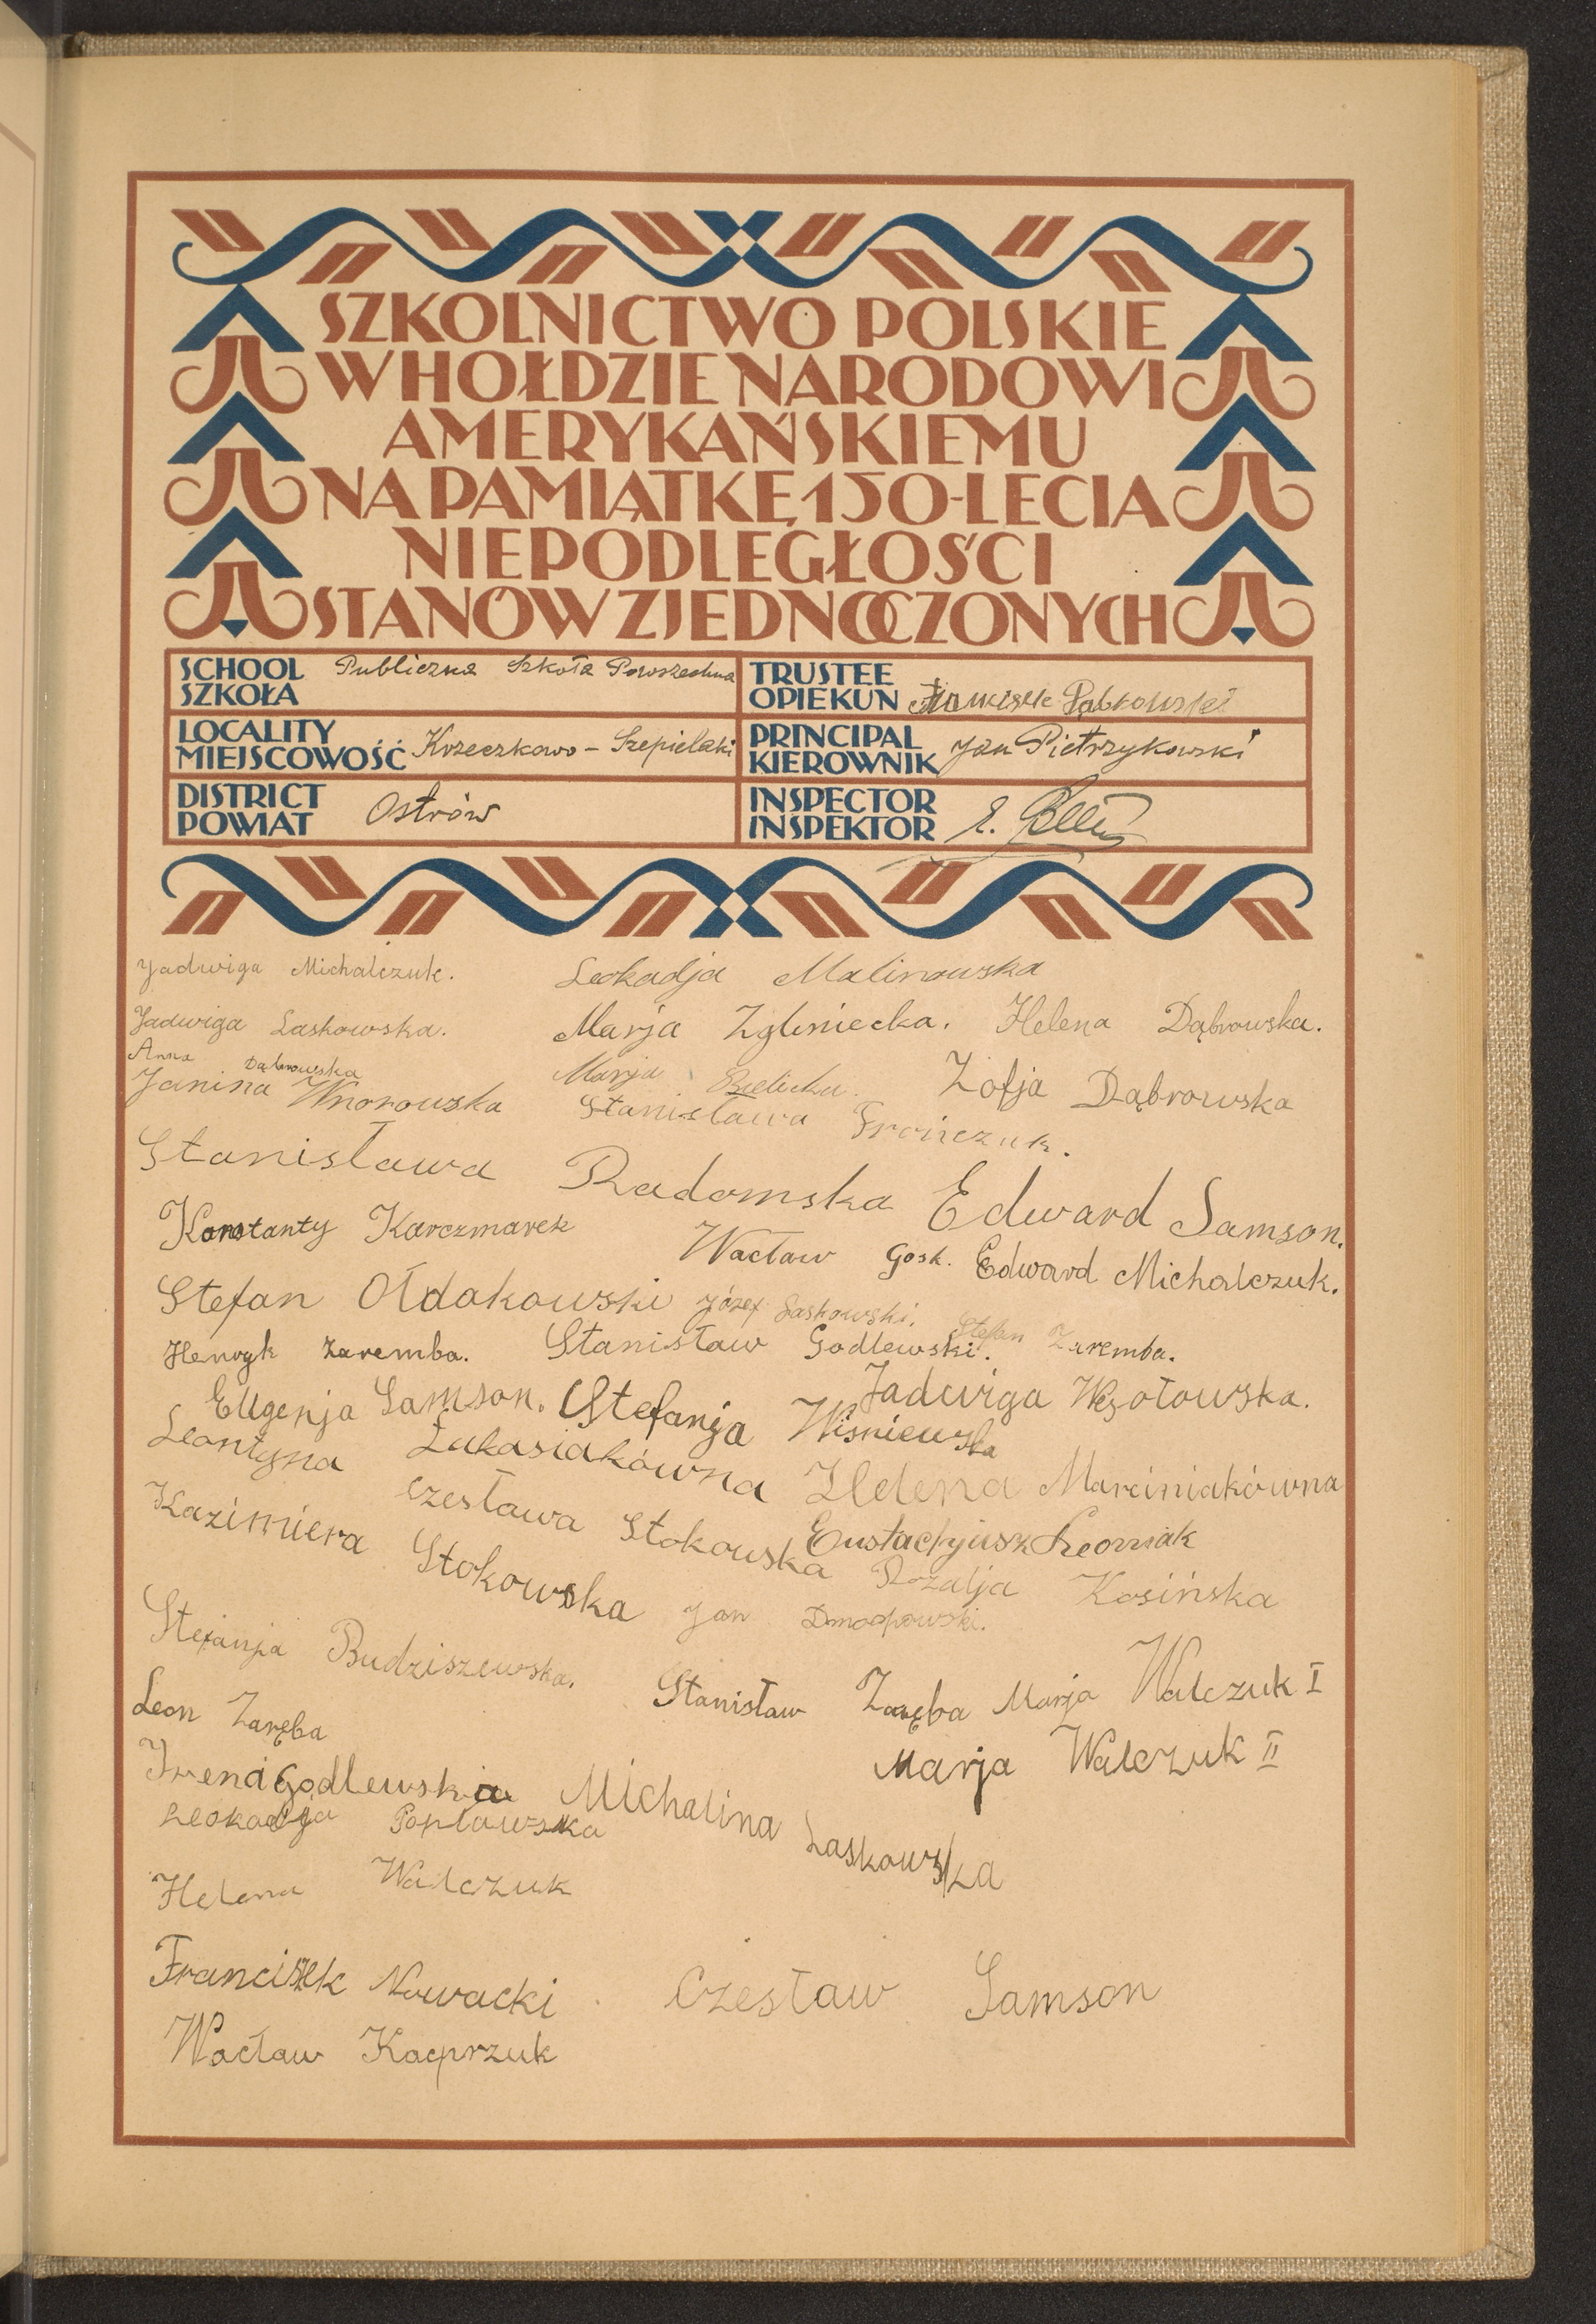 SZKOLNICTWO POLSKIE
W HOŁDZIE NARODOWI
AMERYKAŃSKIEMU
NA PAMIĄTKĘ 150-LECIA
NIEPODLEGŁOŚCI
STANÓW ZJEDNOCZONYCH
SCHOOL
SZKOŁA Publiczna Szkoła Powszechna
TRUSTEE
OPIEKUN Franciszek Dąbrowski
LOCALITY
MIEJSCOWOŚĆ Krzeczkowo - Szepielaki
PRINCIPAL
KIEROWNIK Jan Pietrzykowski
DISTRICT
POWIAT Ostrów
INSPECTOR
INSPEKTOR E.
Jadwiga Michalczuk. Leokadja Malinowska
Jadwiga Laskowska. Marja Zgleniecka. Helena Dąbrowska.
Anna Dąbrowska Marja Bielicka. Zofja Dąbrowska
Janina Wnorowska Stanisława Frończuk.
Stanisława Radomska Edward Samson.
Konstanty Karczmarek Wacław Gosk. Edward Michalczuk.
Stefan Ołdakowski Józef Laskowski.
Henryk Zaremba. Stanisław Godlewski. Stefan Zaremba.
Eugenja Samson. Stefanja Wiśniewska Jadwiga Wesołowska.
Leontyna Łukasiakówna Helena Marciniakówna
Kazimiera Stokowska Czesława Stokowska Eustachjusz
Rozalja Kosińska
Jan Dmochowski.
Stefanja Budziszewska. Stanisław Zaręba Marja Walczuk I
Leon Zaręba
Marja Walczuk II
Irena Godlewska Michalina Laskowska
Leokadja Popławska
Helena Walczuk
Franciszek Nowacki Czesław Samson
Wacław Kacprzuk